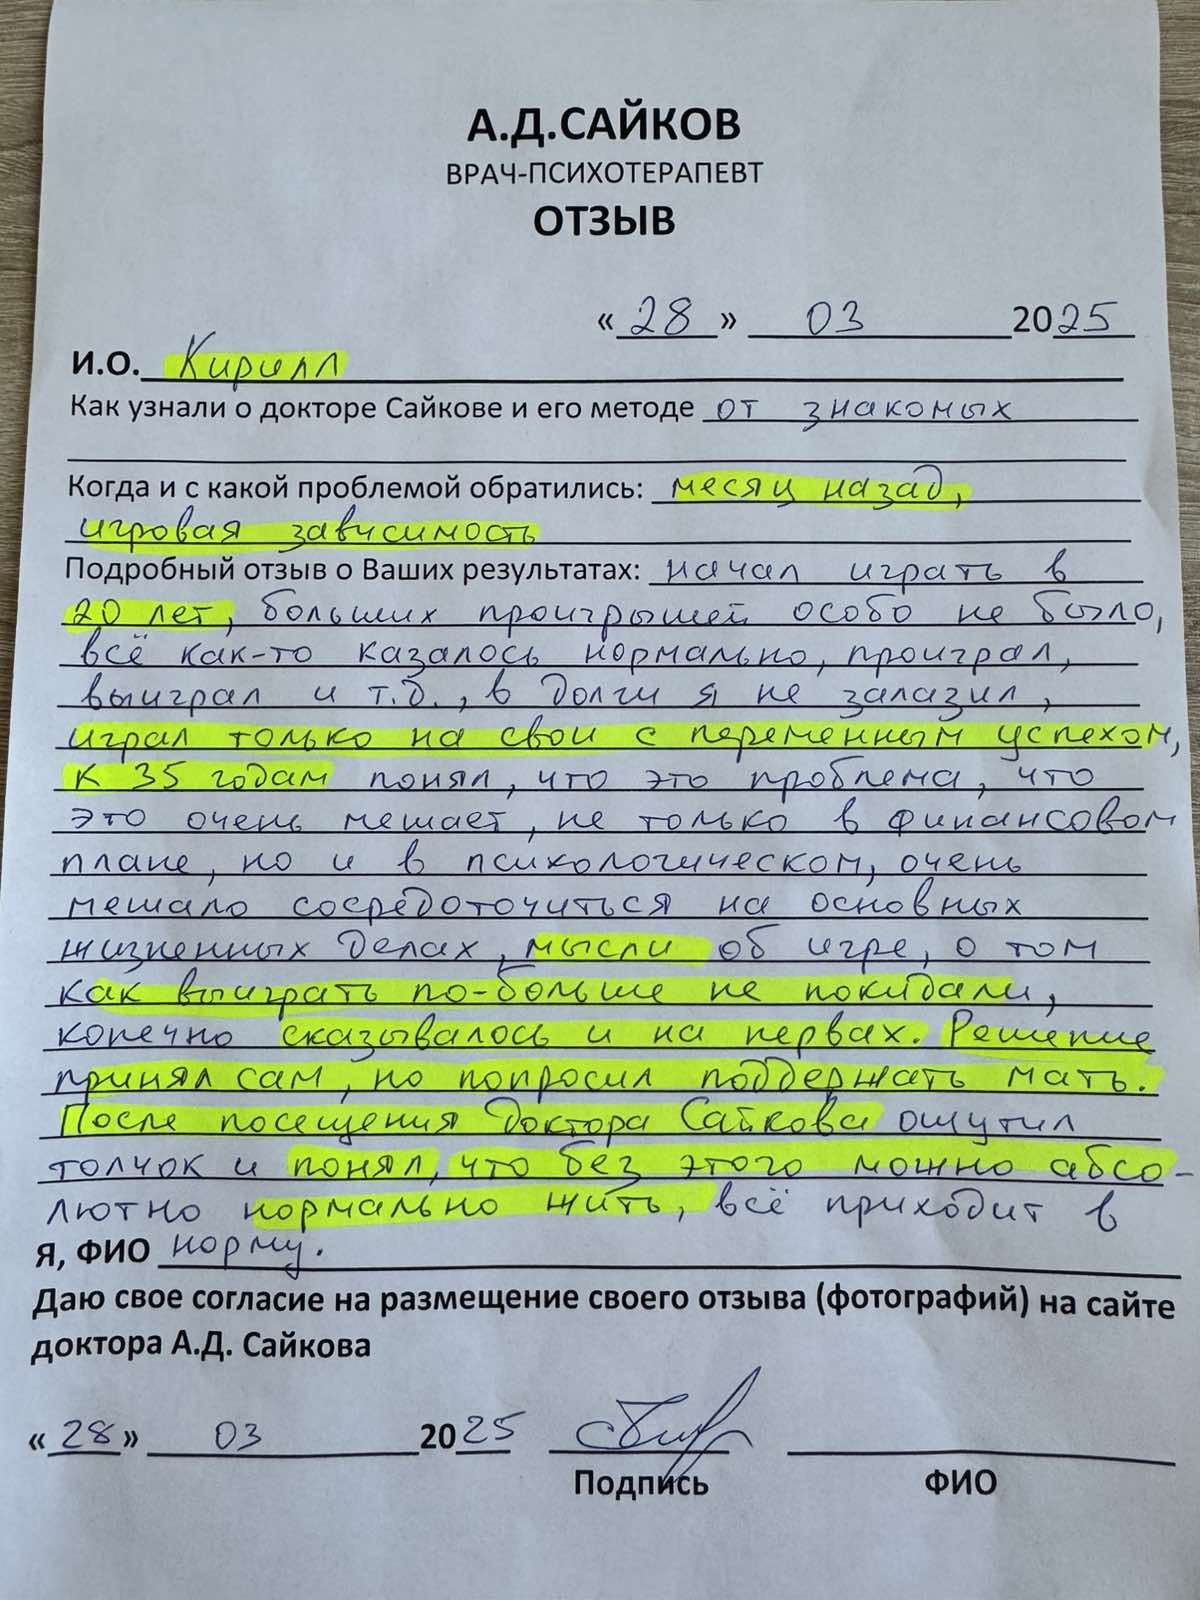 А.Д.САЙКОВ
ВРАЧ-ПСИХОТЕРАПЕВТ
ОТЗЫВ
«28» 03 2025
И.О. Кирилл
Как узнали о докторе Сайкове и его методе от знакомых
Когда и с какой проблемой обратились: месяц назад,
игровая зависимость
Подробный отзыв о Ваших результатах: начал играть в
20 лет, больших проигрышей особо не было,
всё как-то казалось нормально, проиграл,
выиграл и т.д., в долги я не залазил,
играл только на свои с переменным успехом,
к 35 годам понял, что это проблема, что
это очень мешает, не только в финансовом
плане, но и в психологическом, очень
мешало сосредоточиться на основных
жизненных делах, мысли об игре, о том
как выиграть по-больше не покидали,
конечно сказывалось и на нервах. Решение
принял сам, но попросил поддержать мать.
После посещения Доктора Сайкова ощутил
толчок и понял, что без этого можно абсо-
лютно нормально жить, всё приходит в
Я, ФИО норму.
Даю свое согласие на размещение своего отзыва (фотографий) на сайте
доктора А.Д. Сайкова
«28» 03 2025
Подпись ФИО